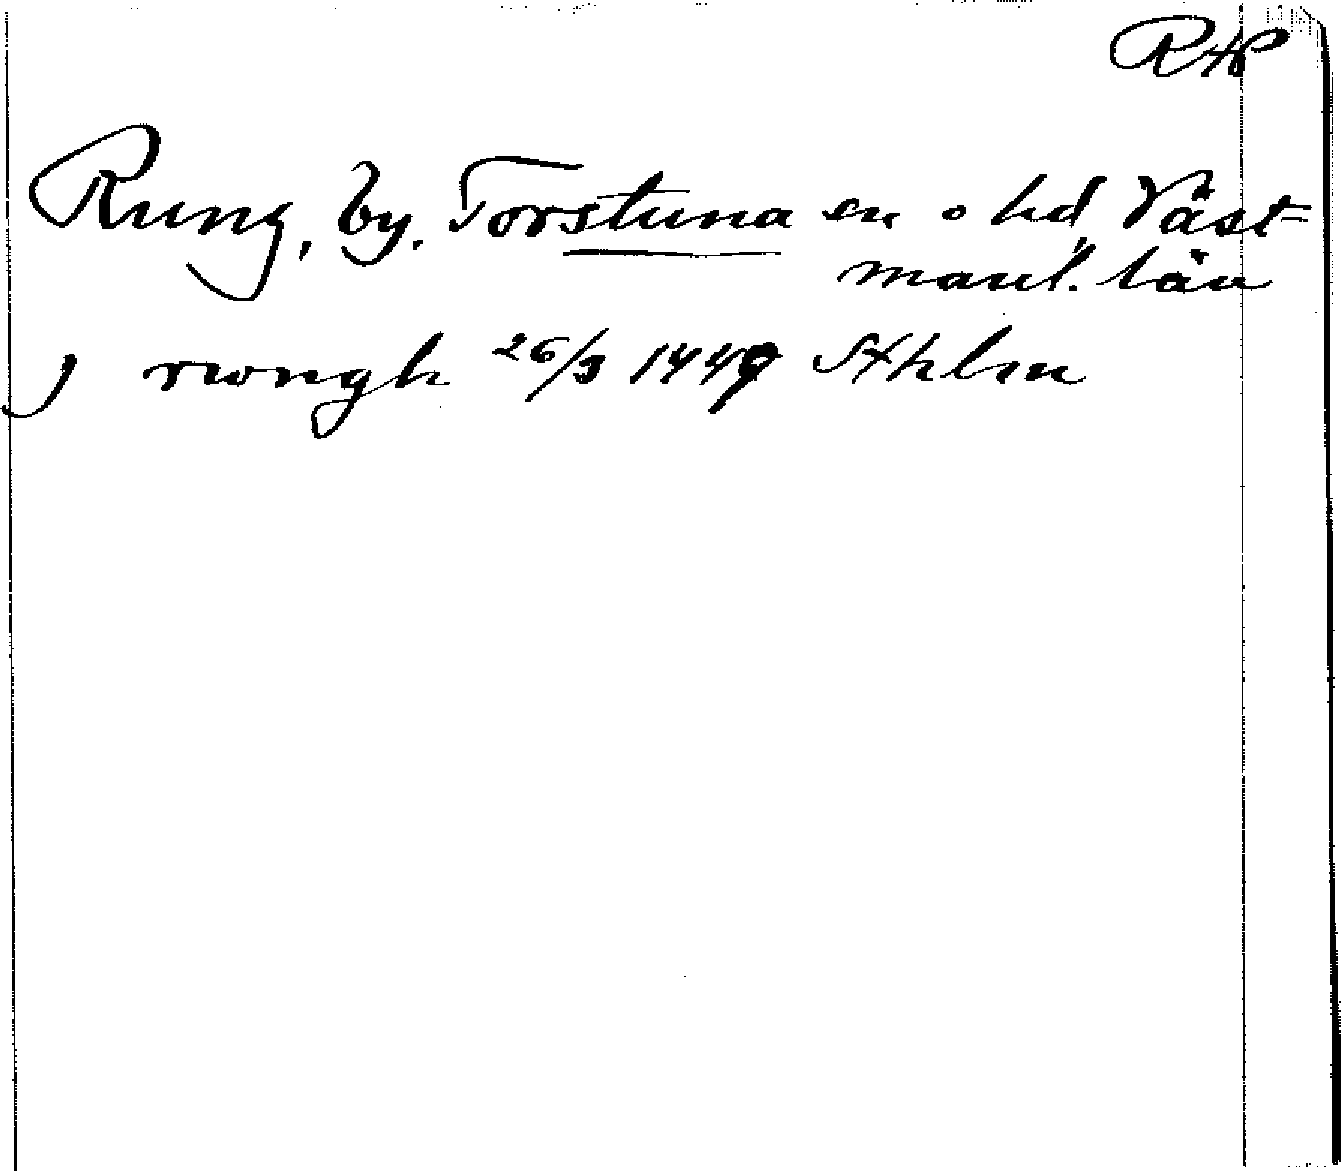 RAP
Rung, by. Torstuna sn o hd, Väst=
manl. län
J rwngh 26/3 1449 Sthlm